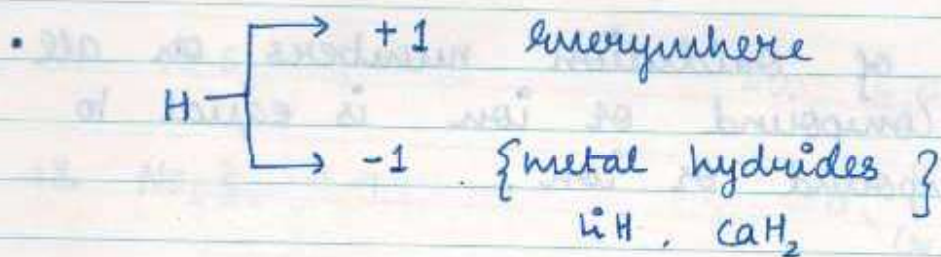 • +1 everywhere
H
-1 {metal hydrides}
LiH, CaH₂